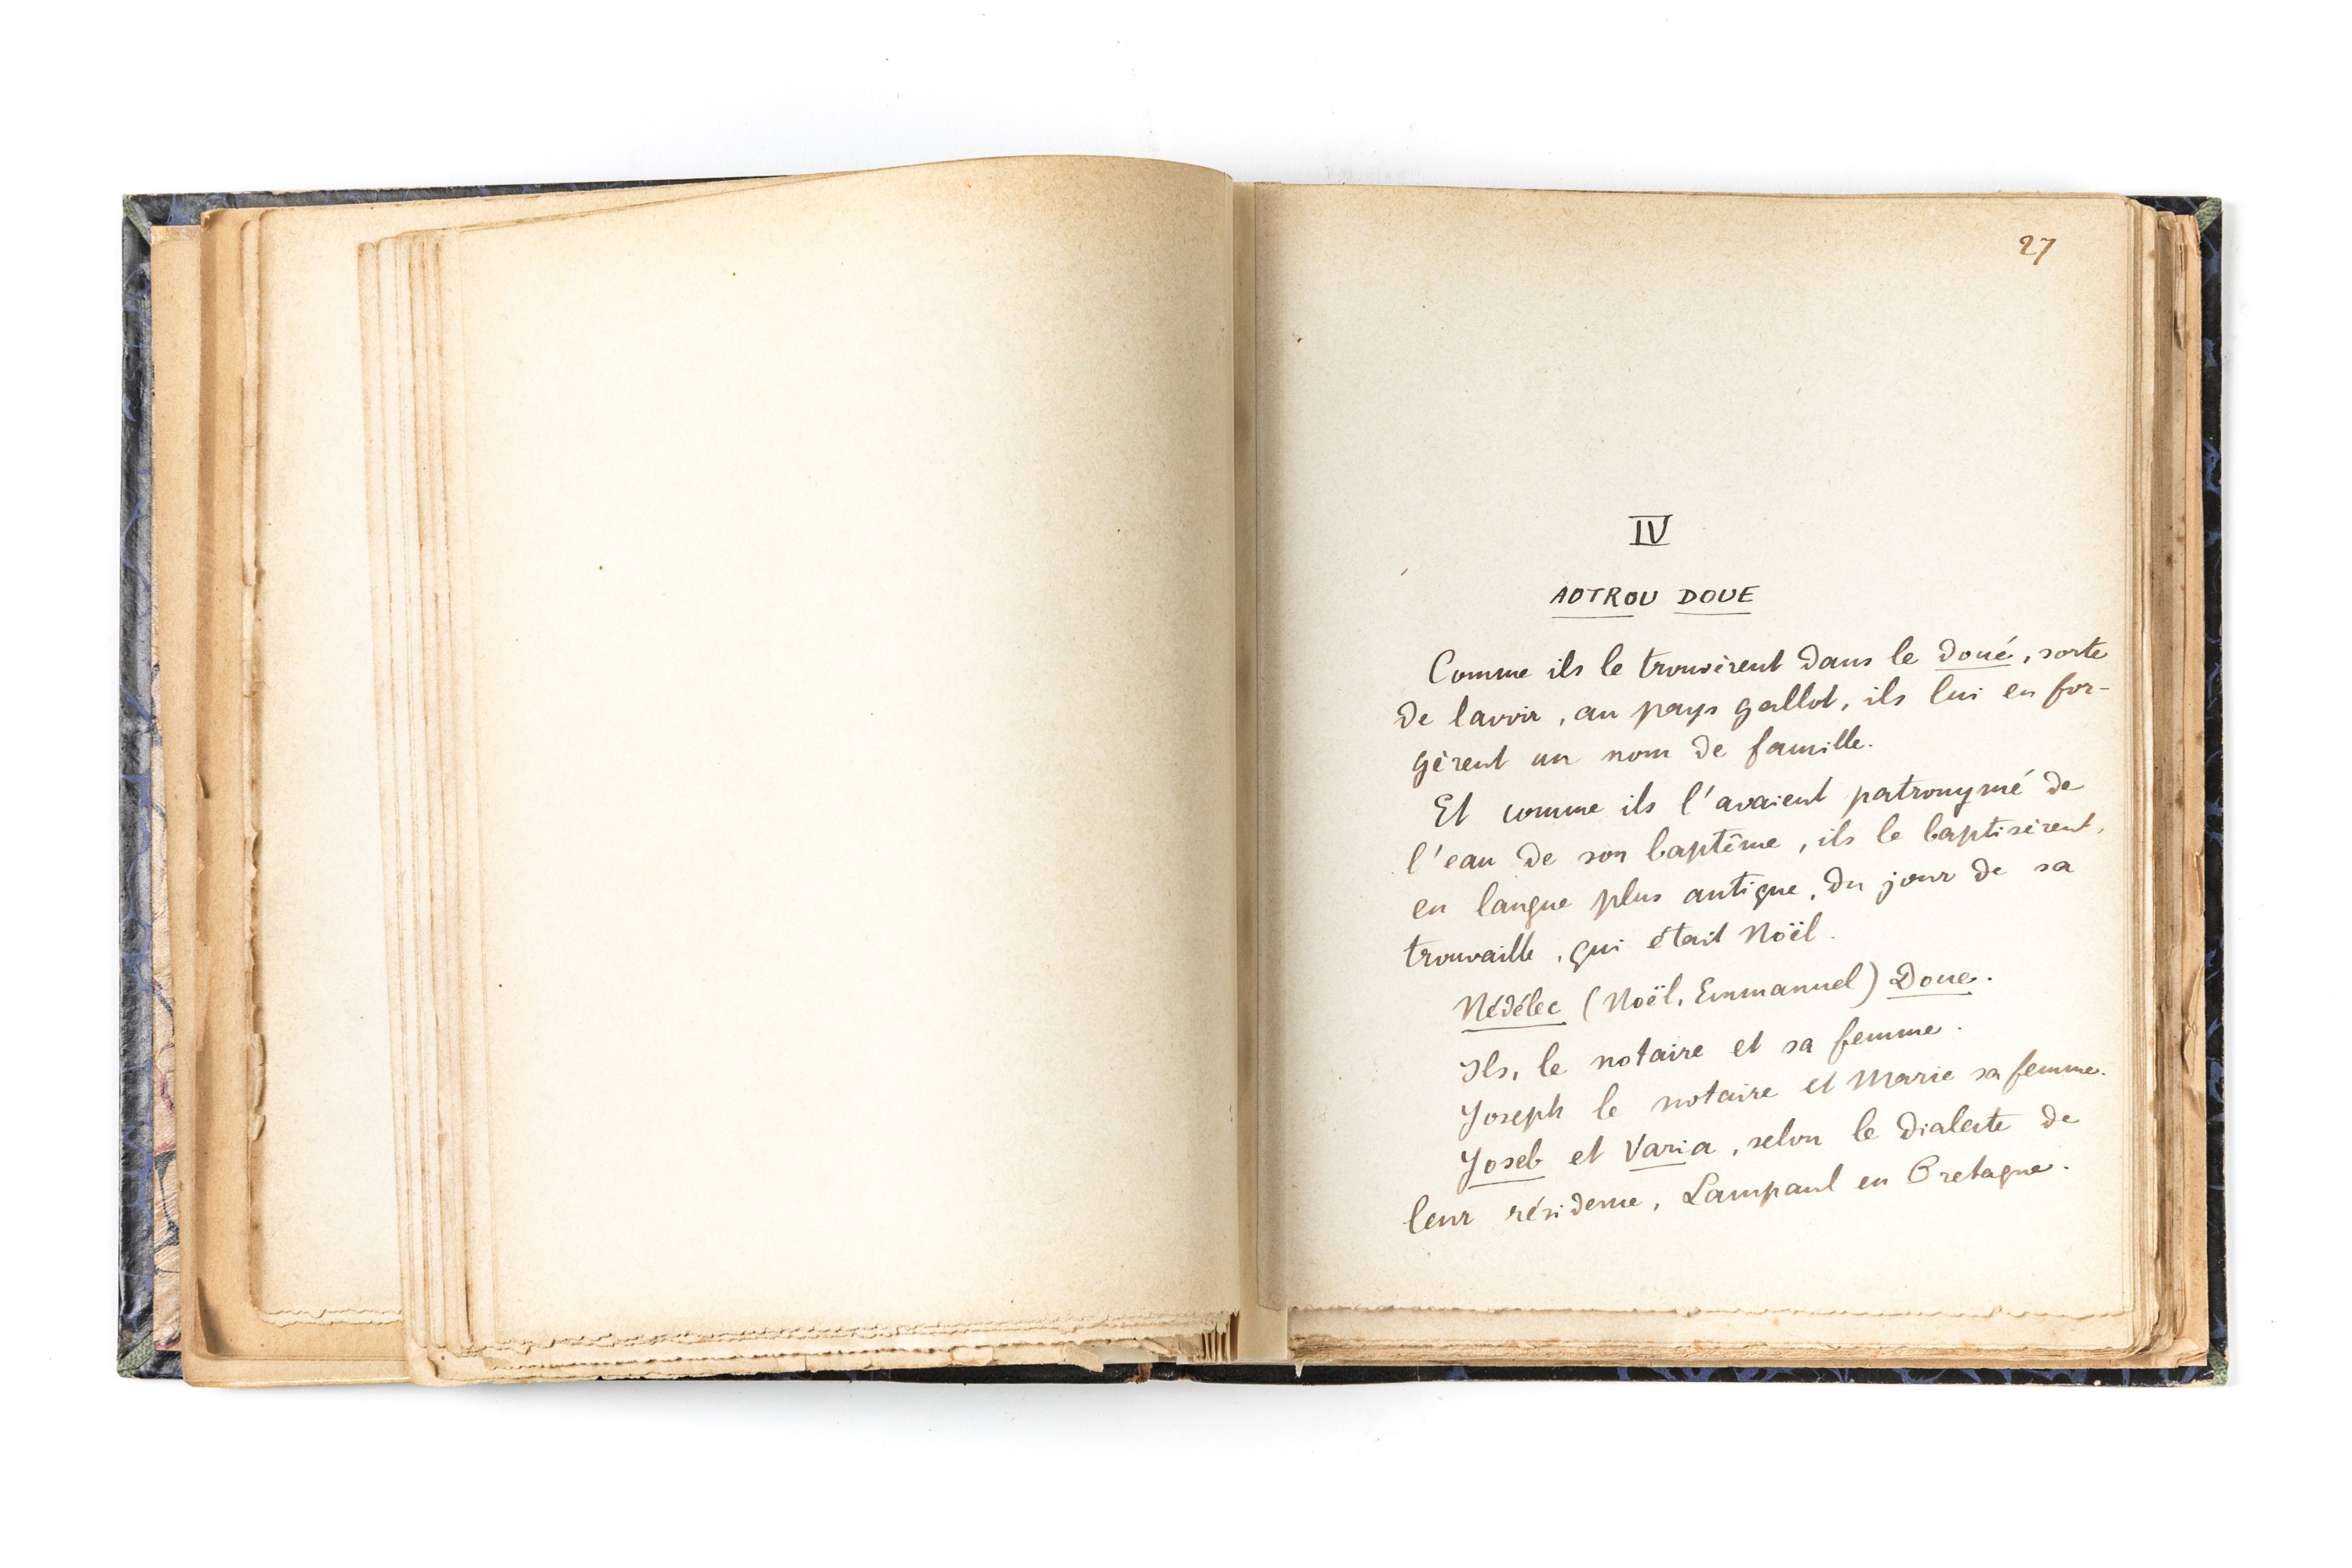 27
IV
AOTROU DOUE
Comme ils le trouvèrent dans le doué, sorte
de lavoir, au pays gallot, ils lui en for-
gèrent un nom de famille.
Et comme ils l'avaient patronymé de
l'eau de son baptême, ils le baptisèrent,
en langue plus antique, du jour de sa
trouvaille, qui était Noël.
Nédélec (Noël, Emmanuel) Doue.
Ils, le notaire et sa femme.
Joseph le notaire et Marie sa femme.
Joseb et Varia, selon le dialecte de
leur résidence, Lampaul en Bretagne.